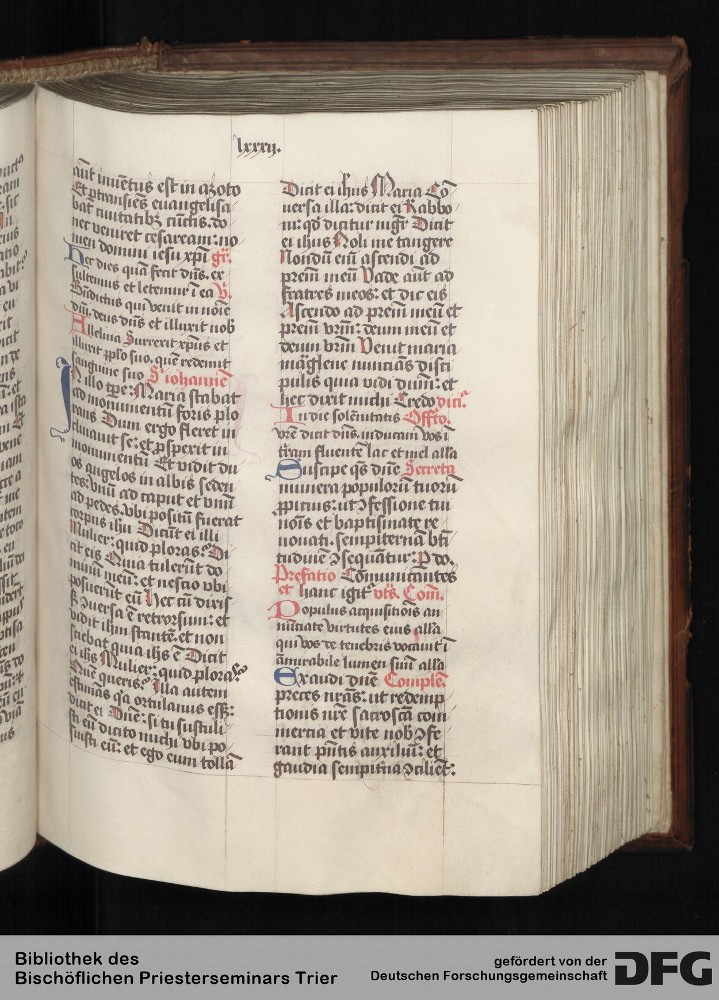 lxxxij.
aūt inuētus est in azoto
Et ꝑtransiēs euangeliſa
bat ciuitatibꝫ cūctis. do
nec veniret cesaream: no
men domini iesu xp̄i gr̄.
Hec dies quā fecit dn̄s. ex
sultemus et letemur ī ea v̄.
Bn̄dictus qui venit in noīe
dn̄i. deus dn̄s et illuxit nob̄
Alleluia Surrexit xp̄us et
illuxit pp̄lo suo. quē redemit
sanguine suo S. iohannē
In illo tp̄e: Maria stabat
ad monumentū foris plo
rans Dum ergo fleret in
clinauit se: et ꝓspexit in
monumentū Et vidit du
os angelos in albis seden
tes: vnū ad caput et vnū
ad pedes. vbi positū fuerat
corpus ihu Dicūt ei illi
Mulier: quid ploras? Di
cit eis Quia tulerūt do
minū meū: et nescio vbi
posuerūt eū Hec cū dixis
set ꝯuersa ē retrorsum: et
vidit ihm stantē. et non
sciebat quia ihs ē Dicit
ei ihs Mulier: quid ploras?
Quē queris? Illa autem
estimās qa ortulanus ess͛:
dicit ei Dn̄e: si tu sustuli
sti eū dicito michi vbi po
suisti eū: et ego eum tollā
Dicit ei ihus Maria Cō
uersa illa: dicit ei Rabbo
ni: qd̄ dicitur mgr̄ Dicit
ei ihus Noli me tangere
Nondū eni ascendi ad
prēm meū Vade aūt ad
fratres meos: et dic eis
Ascendo ad prēm meū et
prēm vrm̄: deum meū et
deum vrm̄ Venit maria
magdlene nuncians disci
pulis quia vidi dn̄m: et
hec dixit michi Credo dicit᷒.
In die solēnitatis Offto.
vrē dicit dn̄s. inducam vos ī
tr̄am fluentē lac et mel all͛a
Suscipe qs̄ dn̄e Secreta
munera populorū tuorū
ꝓpitius: ut ꝯfessione tui
nois̄ et baptismate re
nouati. sempiternā bti
tudinē ꝯsequātur: P do.
Prefatio Comunicantes
et hanc igit᷒ vt s͛. Com̄.
Populus acquisitiōis an
nūciate virtutes eius all͛a
qui vos de tenebris vocauit ī
āmirabile lumen suū all͛a
Exaudi dn̄e Complen̄.
preces nrās: ut redemp
tionis nrē sacroscā com
mercia et vite nob̄ ꝯfe
rant pn̄tis auxiliū: et
gaudia sempit͛na ꝯcilient̄:
Bibliothek des
Bischöflichen Priesterseminars Trier
gefördert von der
Deutschen Forschungsgemeinschaft
DFG